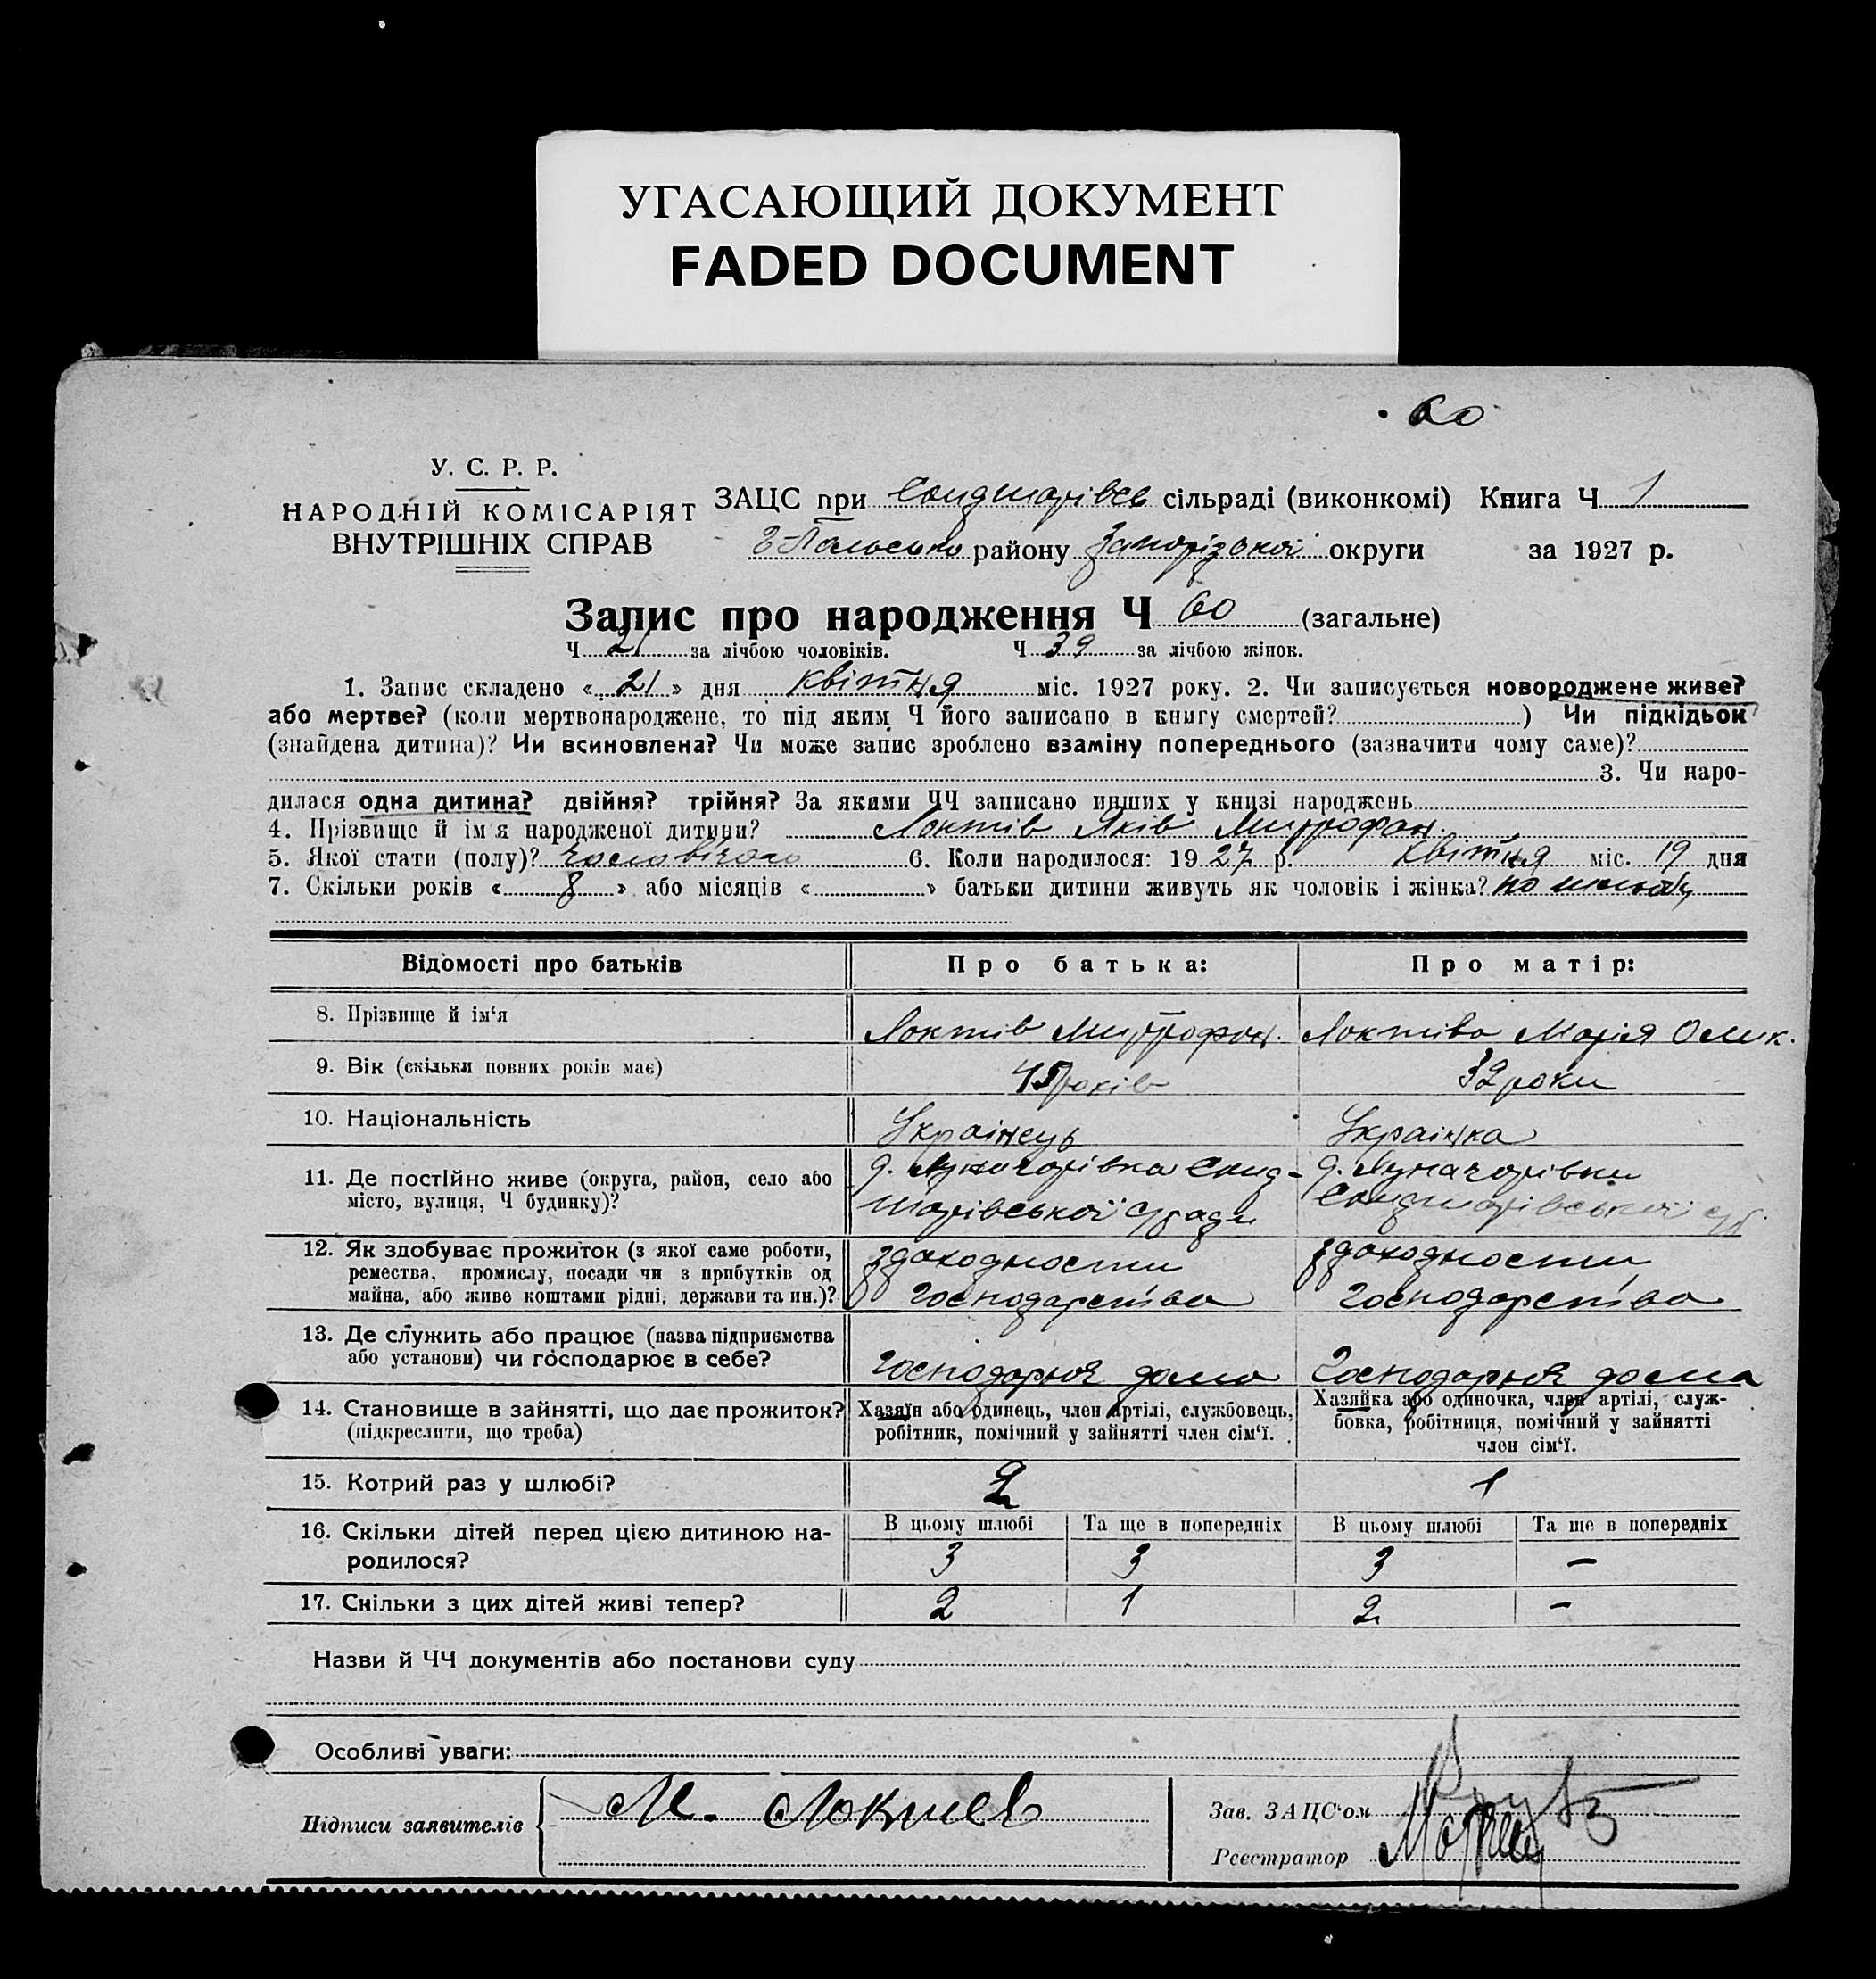 УГАСАЮЩИЙ ДОКУМЕНТ
FADED DOCUMENT
60
У. С. Р. Р.
НАРОДНІЙ КОМІСАРІЯТ
ВНУТРІШНІХ СПРАВ
ЗАЦС при сільраді (виконкомі) Книга Ч 1
району Запорізької округи за 1927 р.
Запис про народження Ч 60 (загальне)
Ч 21 за лічбою чоловіків. Ч 39 за лічбою жінок.
1. Запис складено « 21 » дня квітня міс. 1927 року. 2. Чи записується новороджене живе?
або мертве? (коли мертвонароджене, то під яким Ч його записано в книгу смертей? ) Чи підкідьок
(знайдена дитина)? Чи всиновлена? Чи може запис зроблено взаміну попереднього (зазначити чому саме)?
3. Чи наро-
дилася одна дитина? двійня? трійня? За якими ЧЧ записано инших у книзі народжень
4. Прізвище й ім'я народженої дитини? Локтів Яків Митрофан.
5. Якої стати (полу)? 6. Коли народилося: 1927 р. квітня міс. 19 дня
7. Скільки років « 8 » або місяців « » батьки дитини живуть як чоловік і жінка?
Відомості про батьків
Про батька:
Про матір:
8. Прізвище й ім'я
Локтів Митрофан.
Локтіва Марія Омик.
9. Вік (скільки повних років має)
45 років
32 роки
10. Національність
Українець
Українка
11. Де постійно живе (округа, район, село або
місто, вулиця, Ч будинку)?
12. Як здобуває прожиток (з якої саме роботи,
ремества, промислу, посади чи з прибутків од
майна, або живе коштами рідні, держави та ин.)?
здоходности
господарства
здоходности
господарства
13. Де служить або працює (назва підприємства
або установи) чи господарює в себе?
господарює дома
Господарює дома
14. Становище в зайнятті, що дає прожиток?
(підкреслити, що треба)
Хазяїн або одинець, член артілі, службовець,
робітник, помічний у зайнятті член сім'ї.
Хазяйка або одиночка, член артілі, служ-
бовка, робітниця, помічний у зайнятті
член сім'ї.
15. Котрий раз у шлюбі?
2
1
16. Скільки дітей перед цією дитиною на-
родилося?
В цьому шлюбі Та ще в попередніх
В цьому шлюбі Та ще в попередніх
3 3 3 –
17. Скільки з цих дітей живі тепер?
2 1 2 –
Назви й ЧЧ документів або постанови суду
Особливі уваги:
Підписи заявителів
М. Локтев
Зав. ЗАЦС'ом
Реєстратор